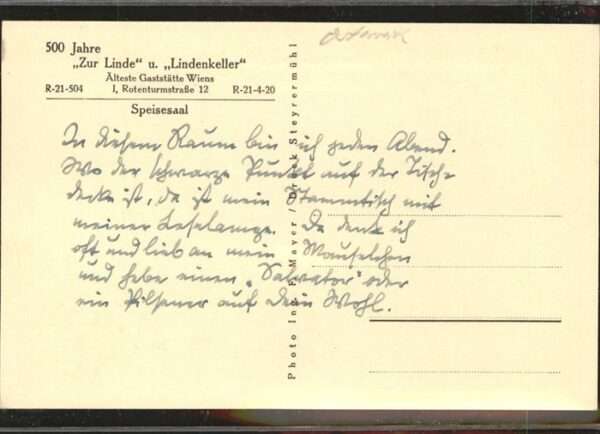 500 Jahre
„Zur Linde“ u. „Lindenkeller“
Älteste Gaststätte Wiens
R-21-504 I, Rotenturmstraße 12 R-21-4-20
Speisesaal
In diesem Raum bin ich jeden Abend.
Wo der schwarze Punkt auf der Tisch-
decke ist, da ist mein Stammtisch mit
meiner Leselampe. Da denk ich
oft und lieb an mein Mauselchen
und hebe einen „Salvator“ oder
ein Pilsener auf Dein Wohl.
Photo Ing. F. Mayer / Druck Steyrermühl